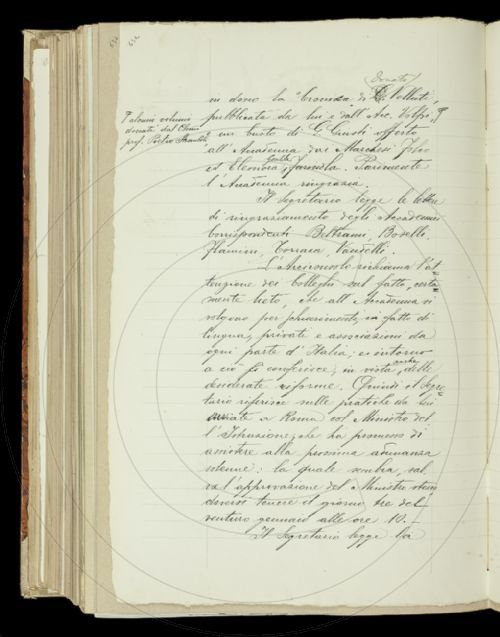 Donato
in dono la "Cronica di D. Velluti
pubblicata da lui e dall' Arc. Volpi,
e un busto di G. Giusti offerto
all' Accademia dai Marchesi
et Eleonora Farinola. Parimente
l' Accademia ringrazia.
Il Segretario legge le lettere
di ringraziamento degli Accademici
Corrispondenti Beltrami, Boselli,
Flamini, Torraca, Vandelli.
L' Arciconsolo richiama l' at-
tenzione dei Colleghi sul fatto, certa-
mente lieto, che all' Accademia si
volgono per schiarimenti in fatto di
lingua, privati e associazioni da
ogni parte d' Italia; e intorno
a ciò si conferisce, in vista anche delle
desiderate riforme. Quindi il Segre-
tario riferisce sulle pratiche da lui
avviate a Roma col Ministro del-
l' Istruzione, che ha promesso di
assistere alla prossima adunanza
solenne: la quale sembra, sal-
va l' approvazione del Ministro stesso
doversi tenere il giorno tre del
venturo gennaio alle ore 10. -
Il Segretario legge la
alcuni volumi
donati dal
prof. Pietro